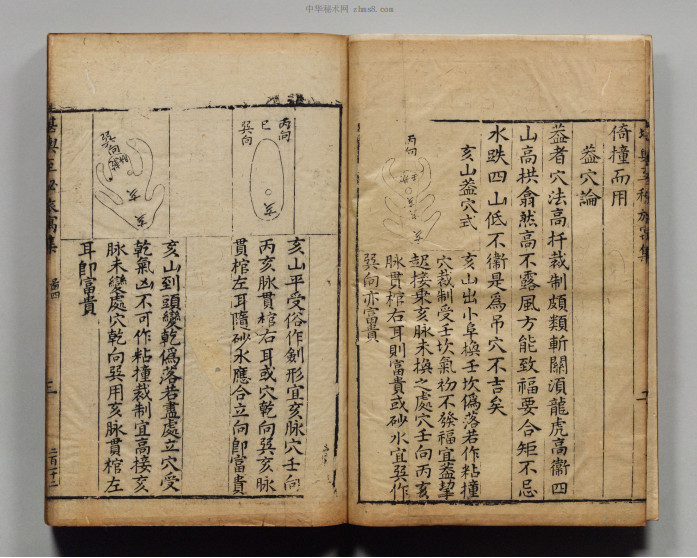 中华秘术网 zhms8.com
倚撞而用
葢穴論
葢者穴法高扦裁制頗類斬關湏龍虎高衞四
山高拱翕然高不露風方能致福要合矩不忌
水跌四山低不衞是爲吊穴不吉矣
亥山葢穴式
丙向
亥
亥
亥山出小阜換壬坎偽落若作粘撞
穴裁制受壬坎氣初不發福宜葢挈
起接乗亥脉未換之處穴壬向丙亥
脉貫棺右耳則富貴或砂水宜巽作
巽向亦富貴
丙向
巳
巽向
亥
亥山平受俗作劍形宜亥脉穴壬向
丙亥脉貫棺右耳或穴乾向巽亥脉
貫棺左耳隨砂水應合立向卽富貴
巽向
亥
亥
亥山到頭變乾僞落若盡處立穴受
乾氣凶不可作粘撞裁制宜高接亥
脉未變處穴乾向巽用亥脉貫棺左
耳卽富貴
三